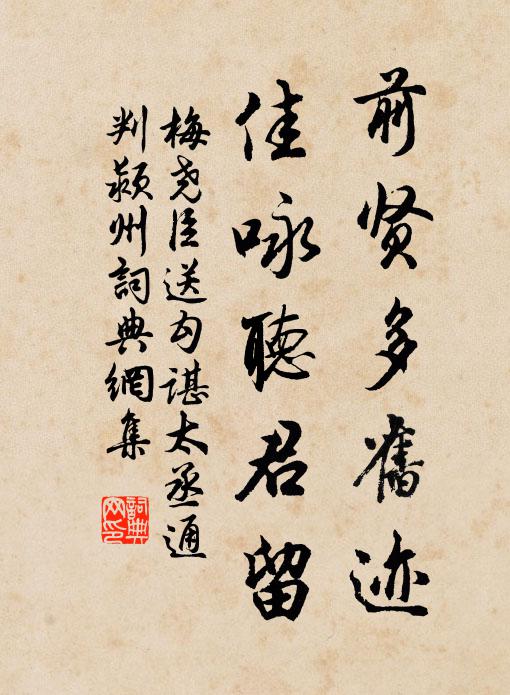 前贤多舊迹
佳咏聽君留
梅堯臣送勾諶太丞通
判颍州詞典網集
詞典网印